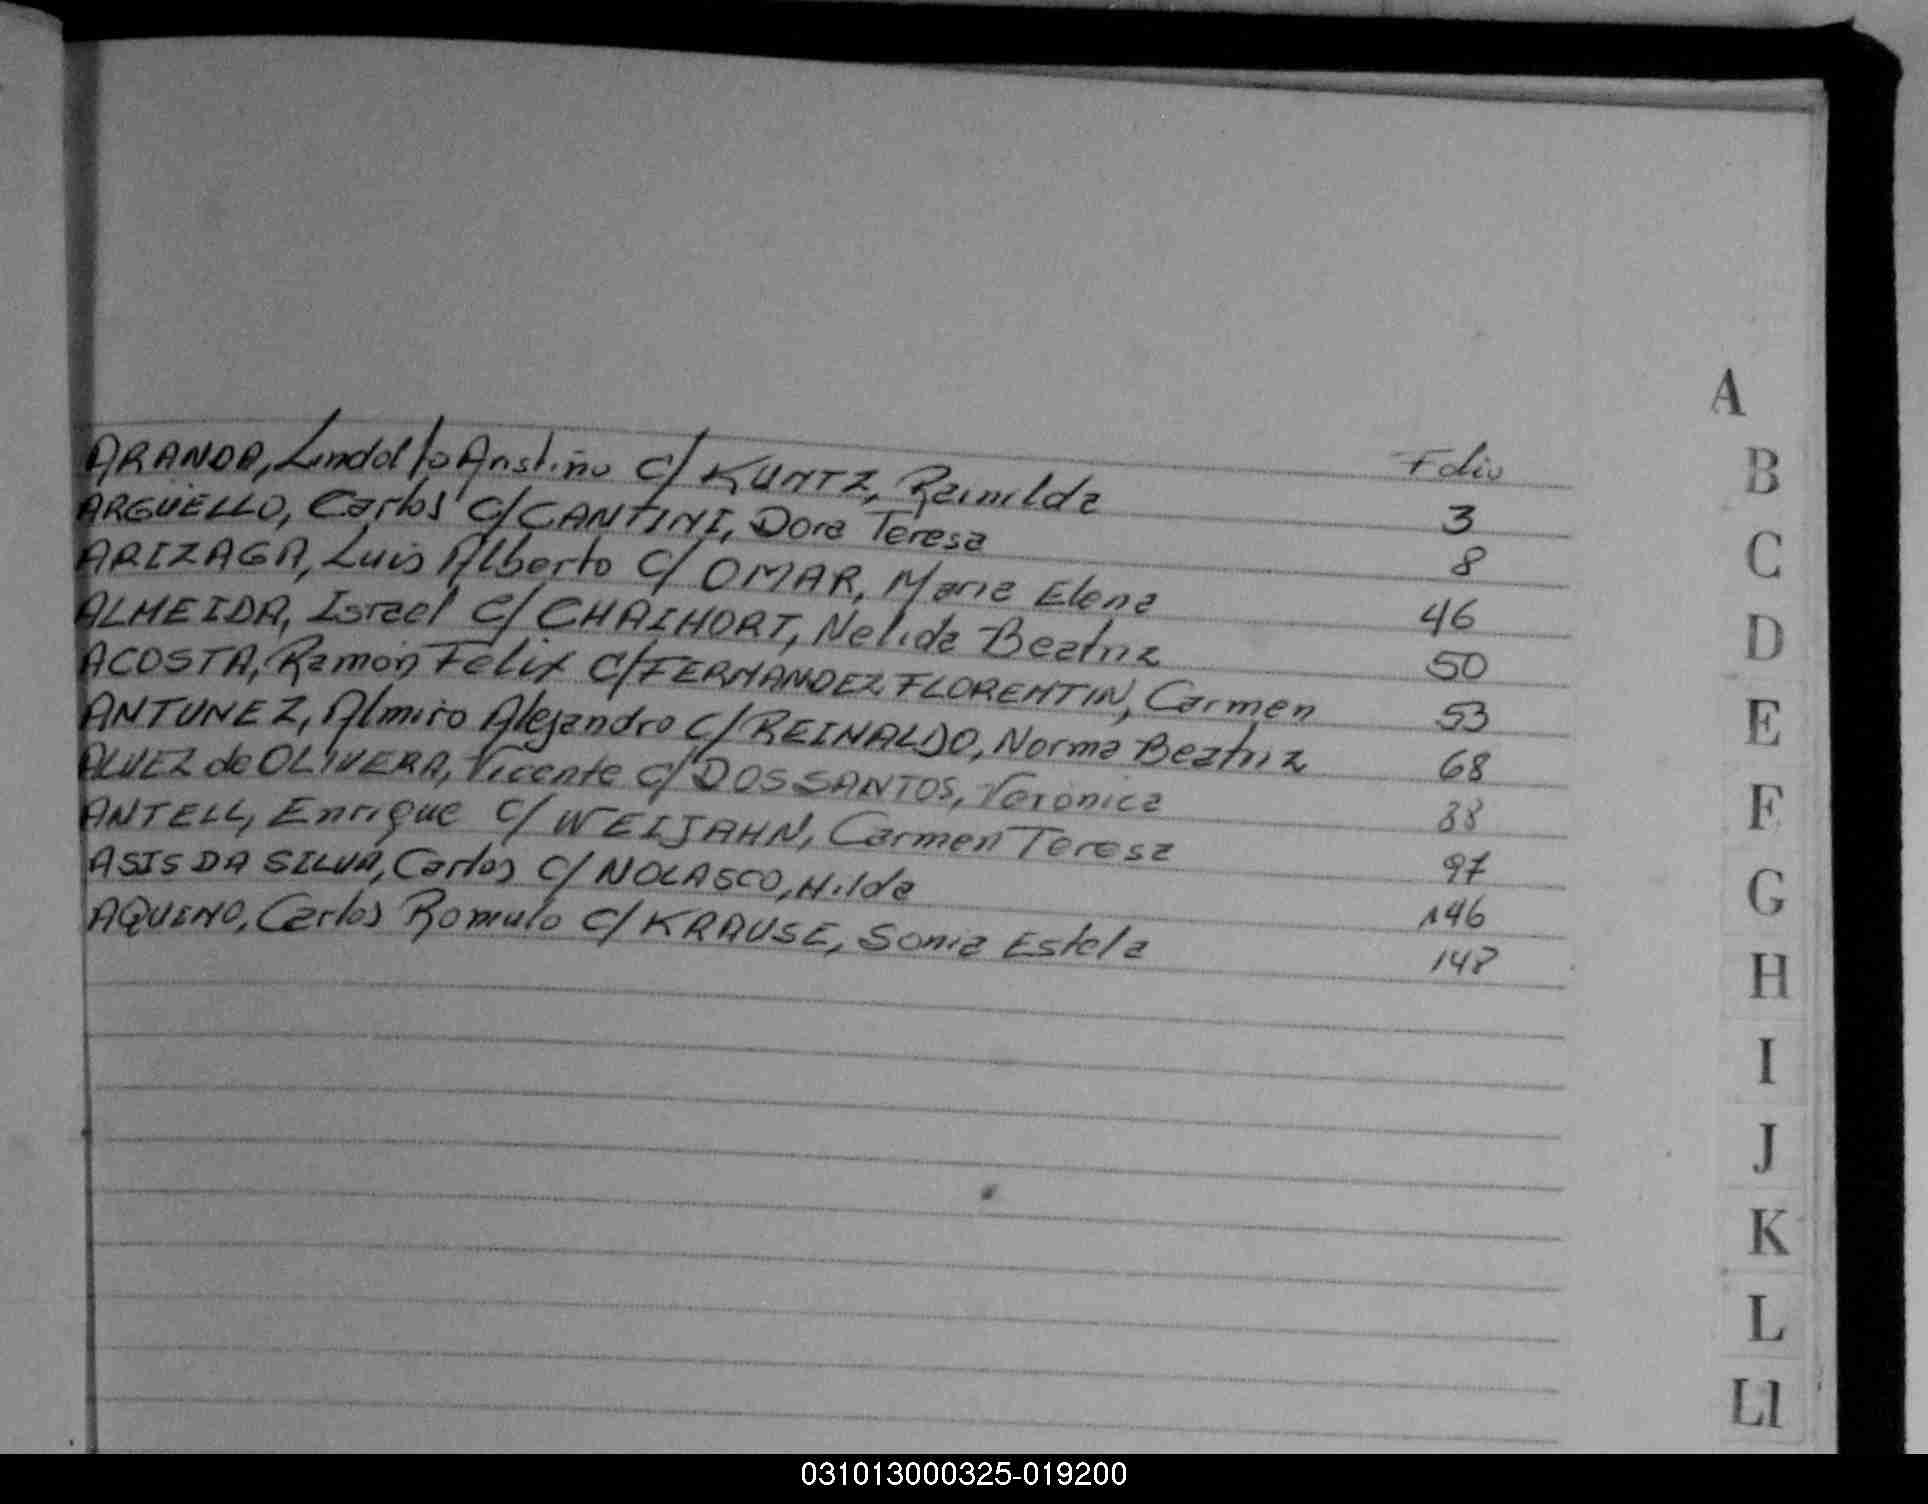 A
Folio
ARANDA, Lindolfo Anstiño c/ KUNTZ, Reinilda 3
ARGÜELLO, Carlos c/ CANTINI, Dora Teresa 8
ARIZAGA, Luis Alberto c/ OMAR, Maria Elena 46
ALMEIDA, Israel c/ CHAIHORT, Nelida Beatriz 50
ACOSTA, Ramón Felix c/ FERNANDEZ FLORENTIN, Carmen 53
ANTUNEZ, Almiro Alejandro c/ REINALDO, Norma Beatriz 68
ALVEZ de OLIVERA, Vicente c/ DOS SANTOS, Veronica 88
ANTELL, Enrique c/ WEIJAHN, Carmen Teresa 97
ASIS DA SILVA, Carlos c/ NOLASCO, Hilda 146
AQUINO, Carlos Romulo c/ KRAUSE, Sonia Estela 148
B
C
D
E
F
G
H
I
J
K
L
Ll
031013000325-019200